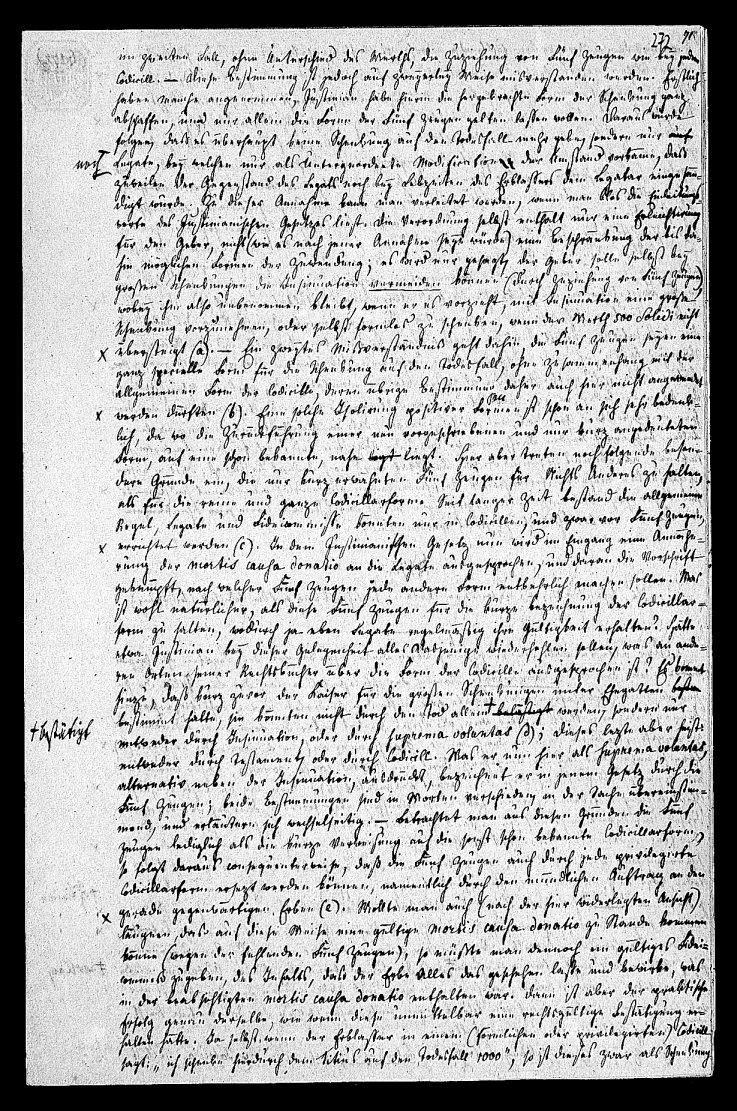 272
im zweiten Fall, ohne Unterschied des Werths, die Zuziehung von Fünf Zeugen wie bey jedem
Codicill. — Diese Bestimmung ist jedoch auf zweyerley Weise misverstanden worden. Erstlich
haben Manche angenommen, Justinian habe hierin die hergebrachte Form der Schenkung ganz
abschaffen, und nur allein die Form der Fünf Zeugen gelten lassen wollen. Daraus würde
folgen, dass es überhaupt keine Schenkung auf den Todesfall mehr gebe, sondern nur
noch Legate, bey welchen nur als untergeordnete Modification der Umstand vorkäme, dass
zuweilen der Gegenstand des Legats noch bey Lebzeiten des Erblassers dem Legatar eingehän-
digt würde. Zu dieser Annahme kann man verleitet werden, wenn man blos die Einleitungs-
worte des Justinianischen Gesetzes liest. Die Verordnung selbst enthält nur eine Erleichterung
für den Geber, nicht (wie es nach jener Annahme seyn würde) eine Beschränkung der bis da-
hin möglichen Formen der Zuwendung; es wird nur gesagt, der Geber solle selbst bey
großen Schenkungen die Insinuation vermeiden können (durch Zuziehung von Fünf Zeugen),
wobey ihm also unbenommen bleibt, wenn er es vorzieht, mit Insinuation eine große
Schenkung vorzunehmen, oder selbst formlos zu schenken, wenn der Werth 500 Solidi nicht
übersteigt (a). — Ein zweytes Misverständniß geht dahin, die Fünf Zeugen seyen eine
ganz specielle Form für die Schenkung auf den Todesfall, ohne Zusammenhang mit der
allgemeinen Form der Codicille, deren übrige Bestimmung daher auch hier nicht angewendet
werden dürften (b). Eine solche Isolirung positiver Formen ist schon an sich sehr bedenk-
lich, da wo die Zurückführung einer neu vorgeschriebenen und nur kurz angedeuteten
Form, auf eine schon bekannte, nahe liegt. Hier aber treten noch folgende beson-
dere Gründe ein, die nur kurz erwähnten Fünf Zeugen für Nichts Anderes zu halten,
als für die reine und ganze Codicillarform. Seit langer Zeit bestand die allgemeine
Regel, Legate und Fideicommisse könnten nur in Codicillen, und zwar vor Fünf Zeugen,
errichtet werden (c). In dem Justinianischen Gesetz nun wird im Eingang eine Annähe-
rung der mortis causa donatio an die Legate ausgesprochen, und daran die Vorschrift
geknüpft, nach welcher Fünf Zeugen jede andere Form entbehrlich machen sollen. Was
ist wohl natürlicher, als diese Fünf Zeugen für die kurze Bezeichnung der Codicillar-
form zu halten, wodurch ja eben Legate regelmäßig ihre Gültigkeit erhalten? Hätte
etwa Justinian bey dieser Gelegenheit alles Dasjenige wiederholen sollen, was an ande-
ren Orten seiner Rechtsbücher über die Form der Codicille ausgesprochen ist? Es kommt
hinzu, dass kurz zuvor der Kaiser für die großen Schenkungen unter Ehegatten
bestimmt hatte, sie könnten nicht durch den Tod allein + werden, sondern nur
+ bestätigt
entweder durch Insinuation, oder durch suprema voluntas (d); dieses letzte aber heißt:
entweder durch Testament, oder durch Codicill. Was er nun hier als suprema voluntas,
alternativ neben der Insinuation, ausdrückt, bezeichnet er in jenem Gesetz durch die
Fünf Zeugen; beide Bestimmungen sind in Worten verschieden, in der Sache übereinstim-
mend, und erläutern sich wechselseitig. — Betrachtet man aus diesen Gründen die Fünf
Zeugen lediglich als die kurze Verweisung auf die sonst schon bekannte Codicillarform,
so folgt daraus consequenterweise, daß die Fünf Zeugen auch durch jede privilegirte
Codicillarform ersetzt werden können, namentlich durch den mündlichen Auftrag an den
gerade gegenwärtigen Erben (e). Wollte man auch (nach der hier widerlegten Ansicht)
läugnen, dass auf diese Weise eine gültige mortis causa donatio zu Stande kommen
könne (wegen der fehlenden Fünf Zeugen), so müßte man dennoch ein gültiges Fidei-
commiß zugeben, des Inhalts, dass der Erbe Alles das geschehen lasse und bewirke, was
in der beabsichtigten mortis causa donatio enthalten war. Dann ist aber der praktische
Erfolg genau derselbe, wie wenn diese unmittelbar eine rechtsgültige Bestätigung er-
halten hätte. Ja selbst wenn der Erblasser in einem (förmlichen oder privilegirten) Codicill
sagt: „ich schenke hierdurch dem Titius auf den Todesfall 1000", so ist dieses zwar als Schenkung